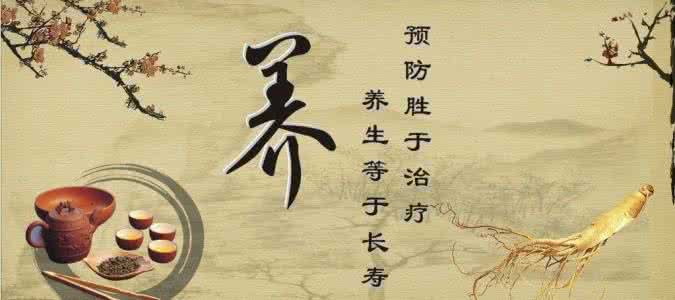 养
预防胜于治疗
养生等于长寿